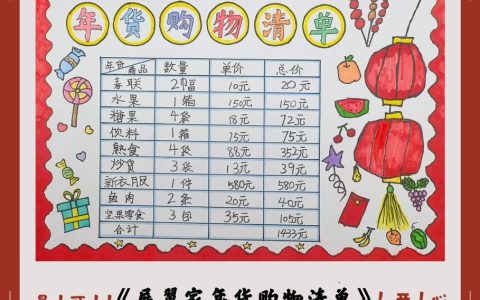 年货购物清单
年货商品 数量 单价 总价
春联 2幅 10元 20元
水果 1箱 150元 150元
糖果 4袋 18元 72元
饮料 1箱 75元 75元
熟食 4袋 88元 352元
炒货 3袋 13元 39元
新衣服 1件 580元 580元
鱼肉 2条 20元 40元
坚果零食 3包 35元 105元
合计 1433元
家年货购物清单》